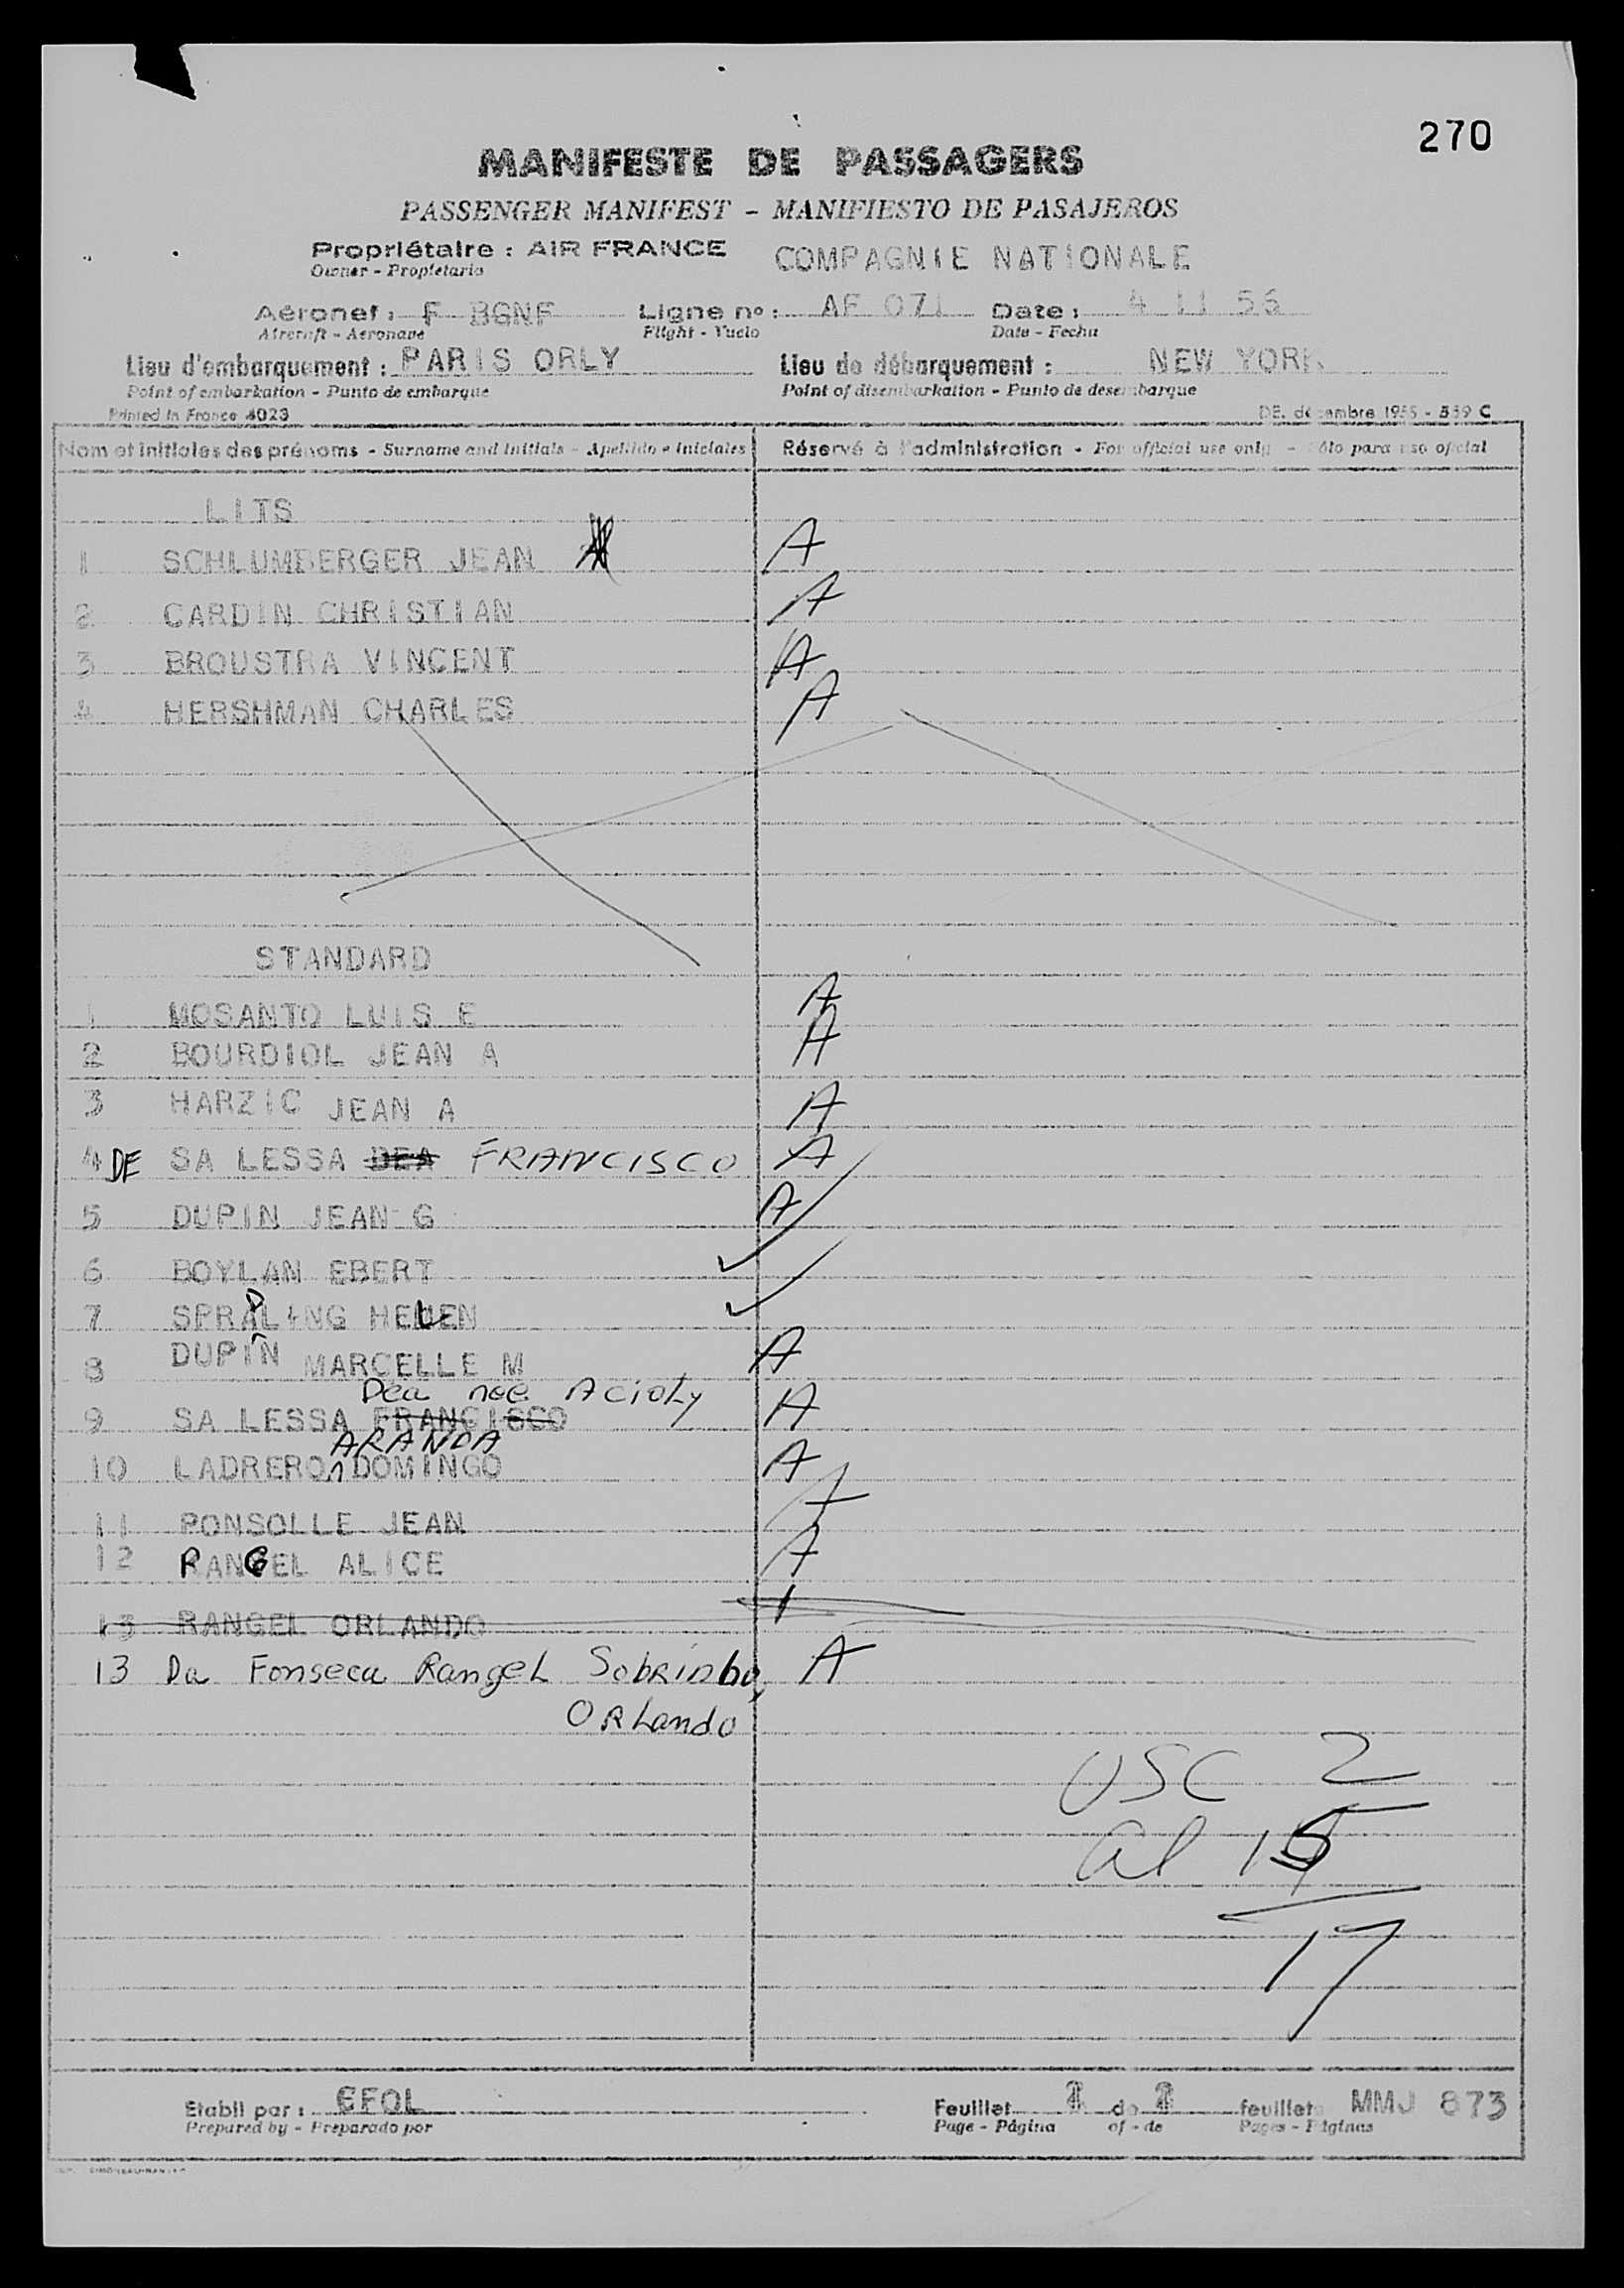 270
MANIFESTE DE PASSAGERS
PASSENGER MANIFEST - MANIFIESTO DE PASAJEROS
Propriétaire : AIR FRANCE COMPAGNIE NATIONALE
Owner - Propietario
Aéronef : F BGNF Ligne nº : AF 071 Date : 4 11 56
Aircraft - Aeronave Flight - Vuelo Date - Fecha
Lieu d'embarquement : PARIS ORLY Lieu de débarquement : NEW YORK
Point of embarkation - Punto de embarque Point of disembarkation - Punto de desembarque
Printed in France 4023 DE. décembre 1955 - 559 C
Nom et initiales des prénoms - Surname and initials - Apellido e iniciales Réservé à l'administration - For official use only - Sólo para uso oficial
LITS
1 SCHLUMBERGER JEAN A
2 CARDIN CHRISTIAN A
3 BROUSTRA VINCENT A
4 HERSHMAN CHARLES A
STANDARD
1 MOSANTO LUIS E A
2 BOURDIOL JEAN A A
3 HARZIC JEAN A A
4 DE SA LESSA DEA FRANCISCO A
5 DUPIN JEAN G A
6 BOYLAN EBERT ✓
P
7 SPRALING HELEN ✓
8 DUPIN MARCELLE M A
Dea nee Acioly
9 SA LESSA FRANCISCO A
ARANDA
10 LADRERO DOMINGO A
11 PONSOLLE JEAN A
12 RANGEL ALICE A
13 RANGEL ORLANDO
13 Da Fonseca Rangel Sobrinho, A
Orlando
USC 2
al 15
17
Etabli par : EFOL Feuillet 1 de 1 feuillets MMJ 873
Prepared by - Preparado por Page - Página of - de Pages - Páginas